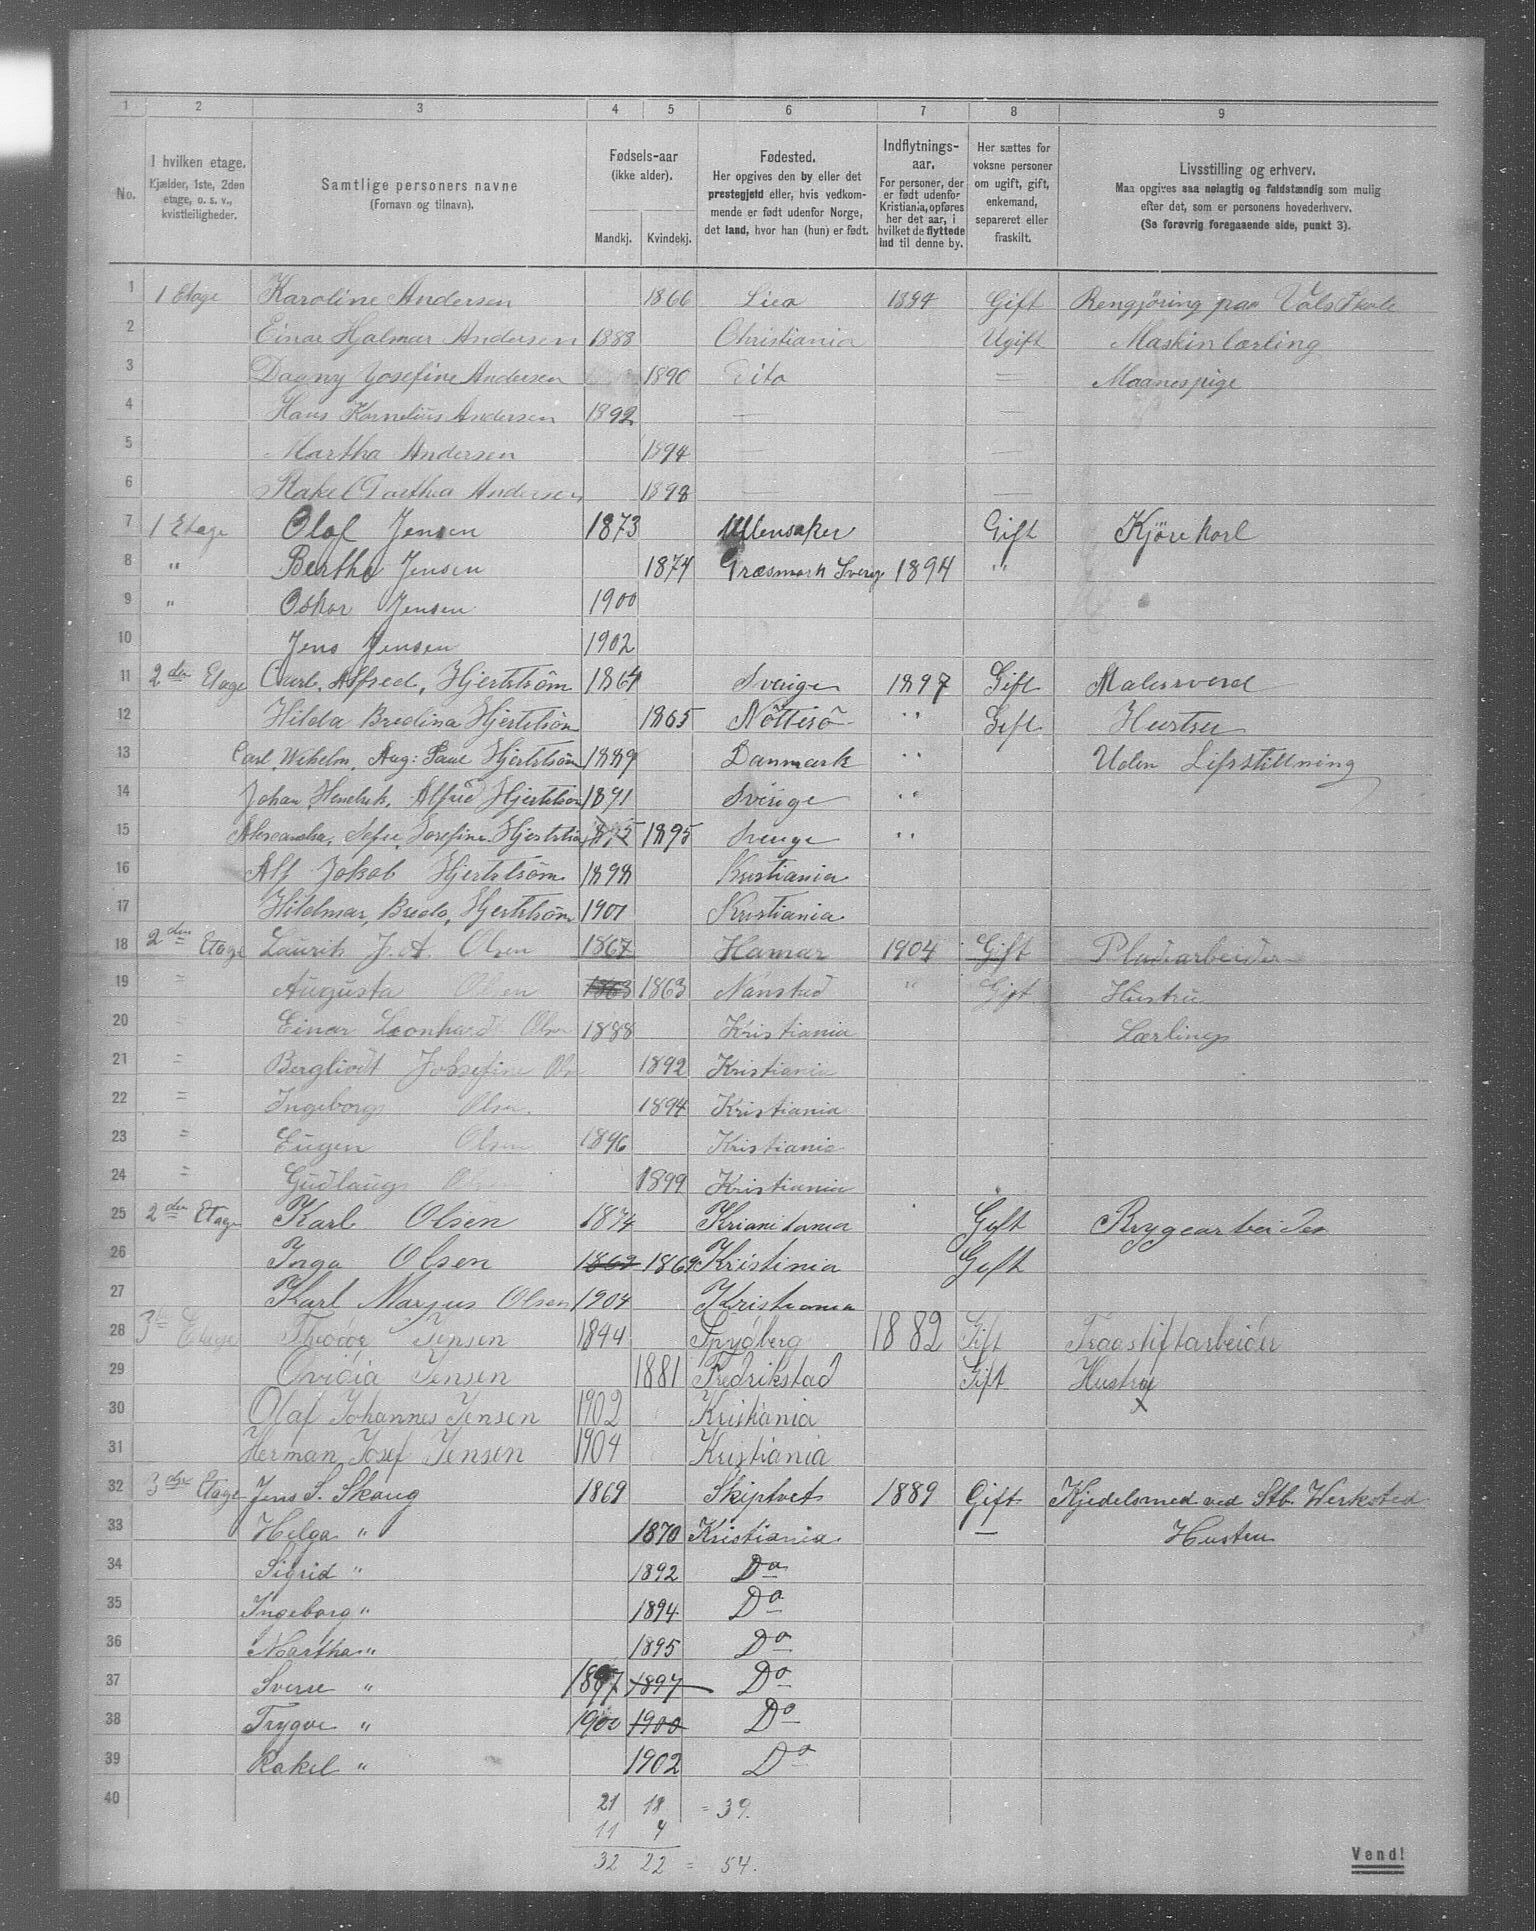 1 2 3 4 5 6 7 8 9
No.
I hvilken etage.
Kjælder, 1ste, 2den
etage, o. s. v.,
kvistleiligheder.
Samtlige personers navne
(Fornavn og tilnavn).
Fødsels-aar
(ikke alder).
Mandkj. Kvindekj.
Fødested.
Her opgives den by eller det
prestegjeld eller, hvis vedkom-
mende er født udenfor Norge,
det land, hvor han (hun) er født.
Indflytnings-
aar.
For personer, der
er født udenfor
Kristiania, opføres
her det aar, i
hvilket de flyttede
ind til denne by.
Her sættes for
voksne personer
om ugift, gift,
enkemand,
separeret eller
fraskilt.
Livsstilling og erhverv.
Maa opgives saa nølagtig og faldstændig som mulig
efter det, som er personens hovederhverv.
(Se forøvrig foregaaende side, punkt 3).
1 1 Etage Karoline Andersen 1866 Lier 1894 Gift Rengjøring paa Vals Skole
2 Einar Hjalmar Andersen 1888 Christiania Ugift Maskinlærling
3 Dagny Josefine Andersen 1890 Dito = Maanespige
4 Hans Kornelius Andersen 1892 — —
5 Martha Andersen 1894 —
6 Rakel Dorthea Andersen 1898 — —
7 1 Etage Olaf Jensen 1873 Ullensaker Gift Kjørekarl
8 " Berthe Jensen 1874 Græsmark Sverige 1894 "
9 " Oskar Jensen 1900
10 Jens Jensen 1902
11 2den Etage Carl, Alfred, Hjertström 1864 Sverige 1897 Gift Malersvend
12 Hilda Bredina Hjertström 1865 Nötterö " Gift Hustru
13 Carl, Wihelm, Aug: Paul Hjertström 1889 Danmark " Uden Lifsstillning
14 Johan, Hendrik, Alfred Hjertström 1891 Sverige "
15 Sofie, Josefine Hjertström 1895 1895 Sverige "
16 Alf Jakob Hjertström 1898 Kristiania
17 Hildmar, Breda, Hjertström 1901 Kristiania
18 2den Etage Laurits J. A. Olsen 1867 Hamar 1904 Gift Pladsarbeider
19 = Augusta Olsen 1863 1863 Nanstad " Gift Hustru
20 = Einar Leonhard Olsen 1888 Kristiania Lærling
21 = Bergliodt Jossefine Olsen 1892 Kristiania
22 = Ingeborg Olsen. 1894 Kristiania
23 = Eugen Olsen 1896 Kristiania
24 = Gudlaug Olsen 1899 Kristiania
25 2den Etage Karl Olsen 1874 Gift Bryggearbeider
26 Inga Olsen 1869 1869 Kristinia Gift
27 Karl Margus Olsen 1904 Kristiania
28 3die Etage Theodor Jensen 1844 Spydberg 1882 Gift Traastiftarbeider
29 Ovidia Jensen 1881 Fredrikstad Gift Hustru
x
30 Olaf Johannes Jensen 1902 Kristiania
31 Herman Josef Jensen 1904 Kristiania
32 3die Etage Jens S. Skaug 1869 Skiptvet 1889 Gift Kjedelsmed ved Stb. Werksted
33 Helga " 1870 Kristiania — Hustru
34 Sigrid " 1892 Do
35 Ingeborg " 1894 Do
36 Martha " 1895 Do
37 Sverre " 1897 1897 Do
38 Trygve " 1900 1900 Do
39 Rakel " 1902 Do
40 21 18 = 39.
11 4
32 22 = 54.
Vend!